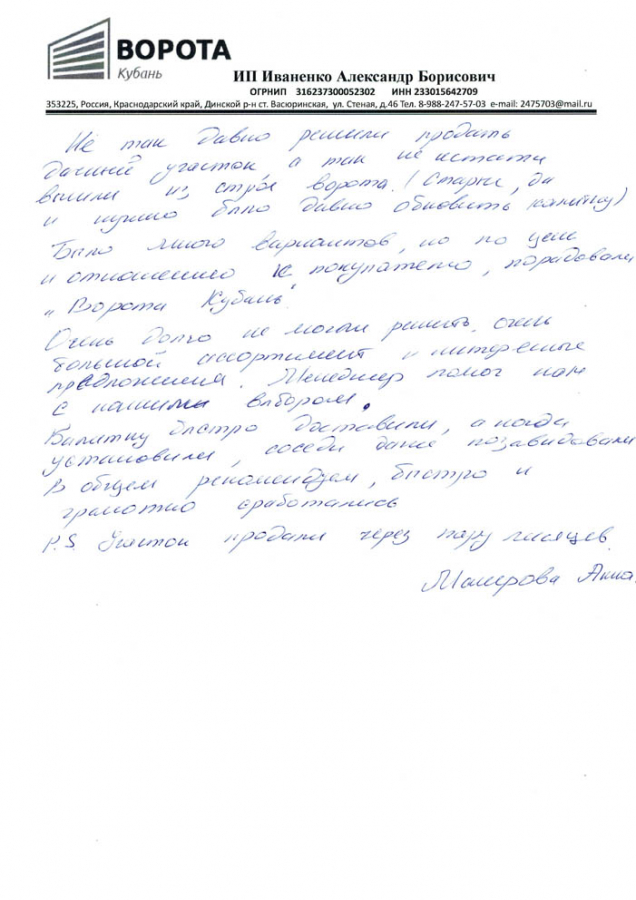 ВОРОТА
Кубань
ИП Иваненко Александр Борисович
ОГРНИП 316237300052302 ИНН 233015642709
353225, Россия, Краснодарский край, Динской р-н ст. Васюринская, ул. Степная, д.46 Тел. 8-988-247-57-03 e-mail: 2475703@mail.ru
Не так давно решили продать
дачный участок, а так не кстати
вышли из строя ворота. (Старые, да
и нужно было давно обновить калитку)
Было много вариантов, но по цене
и отношению к покупателю, порадовали
"Ворота Кубань"
Очень долго не могли решить, очень
большой ассортимент и интересные
предложения. Менеджер помог нам
с нашим выбором.
Калитку быстро доставили, а когда
установили, соседи даже позавидовали
В общем рекомендуем, быстро и
грамотно сработались
P.S. Участок продали через пару месяцев.
Анна.